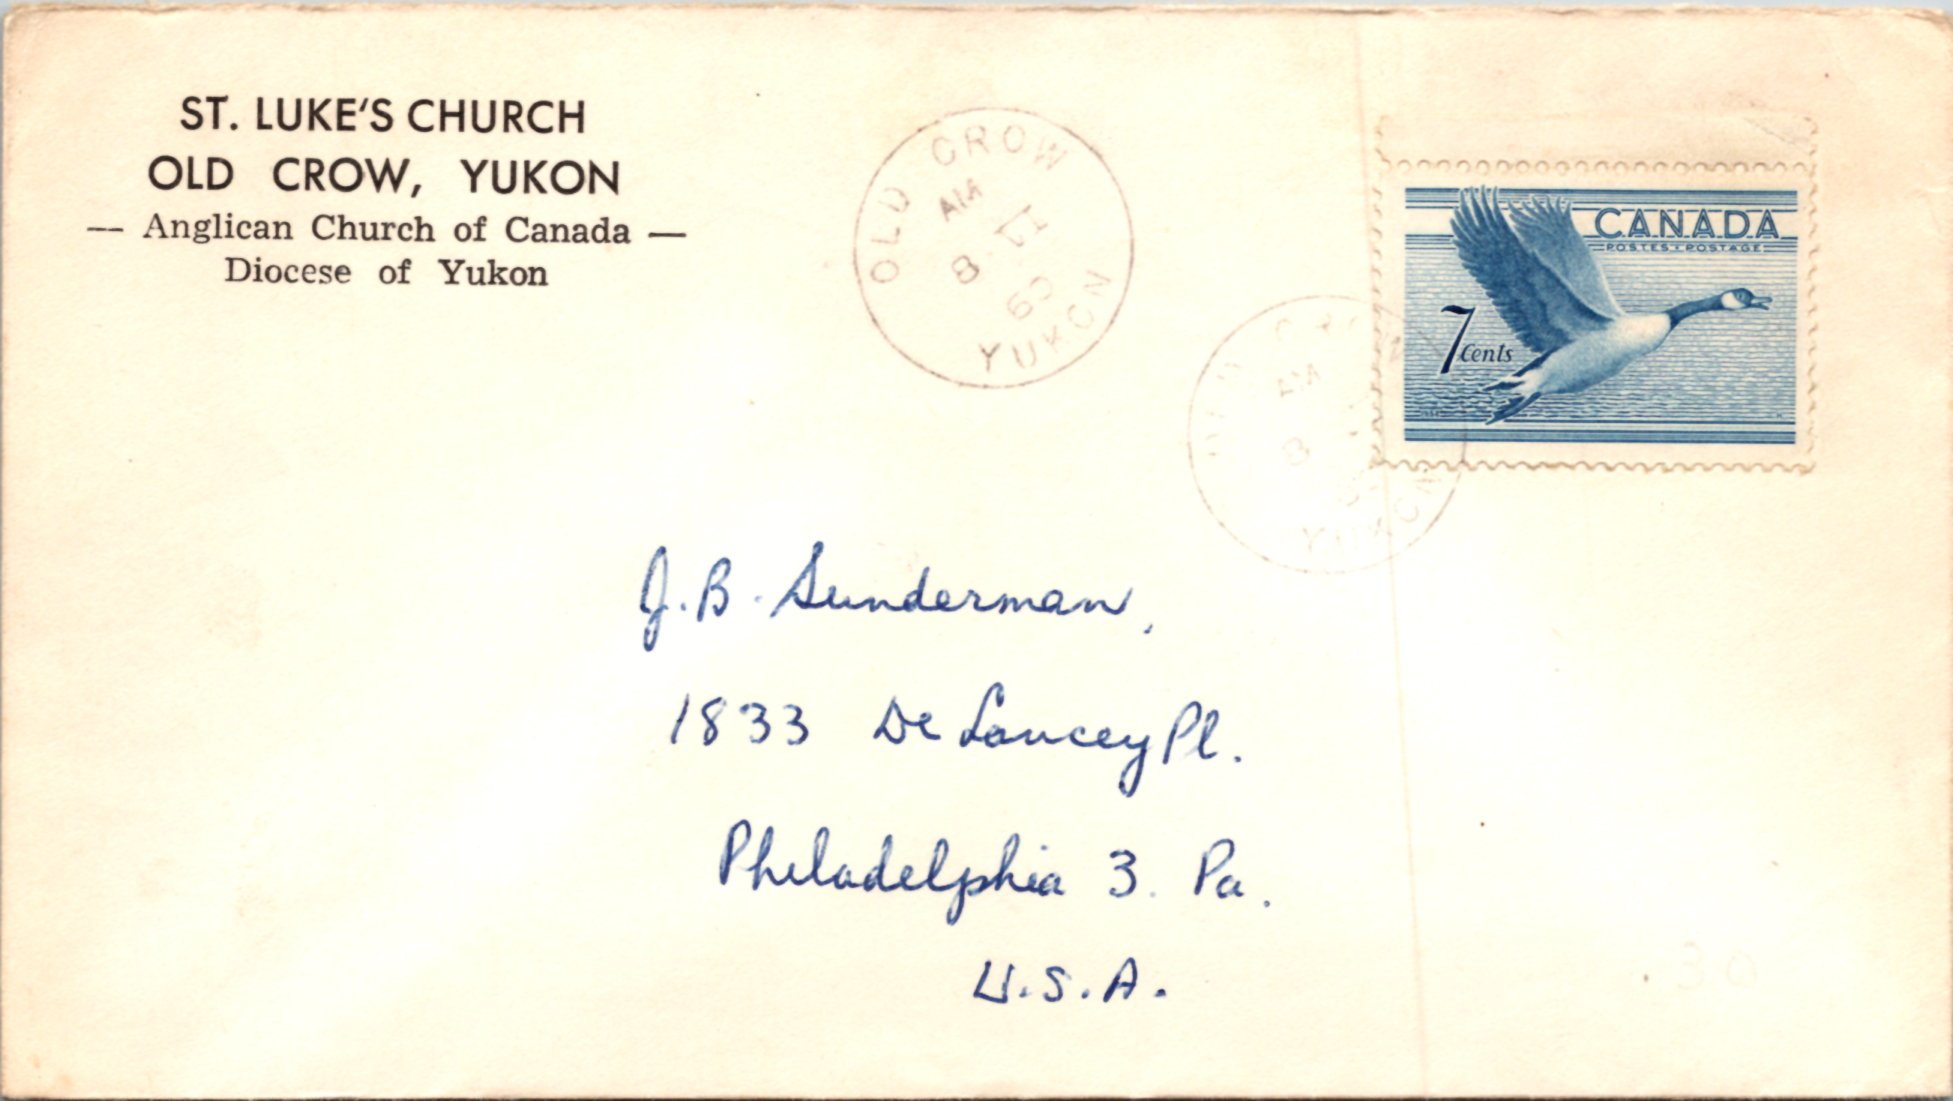 ST. LUKE'S CHURCH
OLD CROW, YUKON
— Anglican Church of Canada —
Diocese of Yukon
OLD CROW
AM
8
YUKON
CANADA
POSTES • POSTAGE
7 Cents
AM
8
YUKON
J. B. Sunderman,
1833 De Lancey Pl.
Philadelphia 3. Pa.
U.S.A.
30